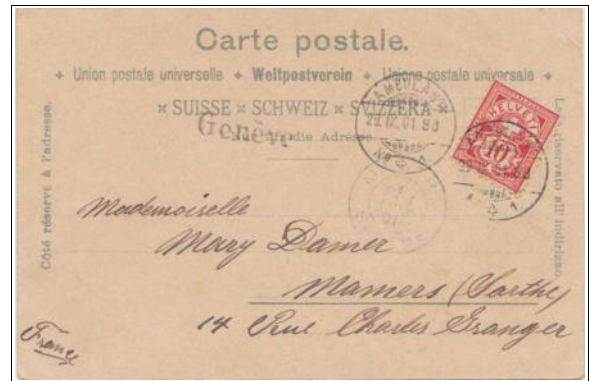 Carte postale.
Union postale universelle ✦ Weltpostverein ✦ Unione postale universale
× SUISSE × SCHWEIZ × SVIZZERA ×
Genève
die Adresse
AMBULANT
29.IV.01.
No 1
HELVETIA
10
Côté réservé à l'adresse.
Lato riservato all'indirizzo.
Mademoiselle
Mary Damer
Mamers (Sarthe)
14 Rue Charles Granger
France